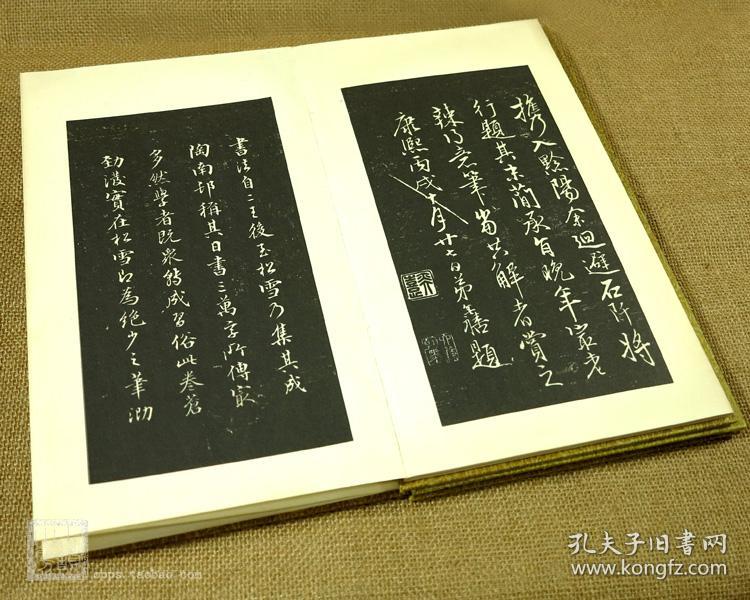 入黔陽余迴避石阡将
行題其末簡承旨晚年最老
辣乃筆當解者賞之
康熙丙戌十月廿七日弟題
書法自二王後至松雪乃集其成
陶南邨稱其日書三萬字所傳最
多然學者既衆轉成習俗此卷蒼
勁實在松雪即為絕少之筆泐
cpps.taobao.com
孔夫子旧書网
www.kongfz.com